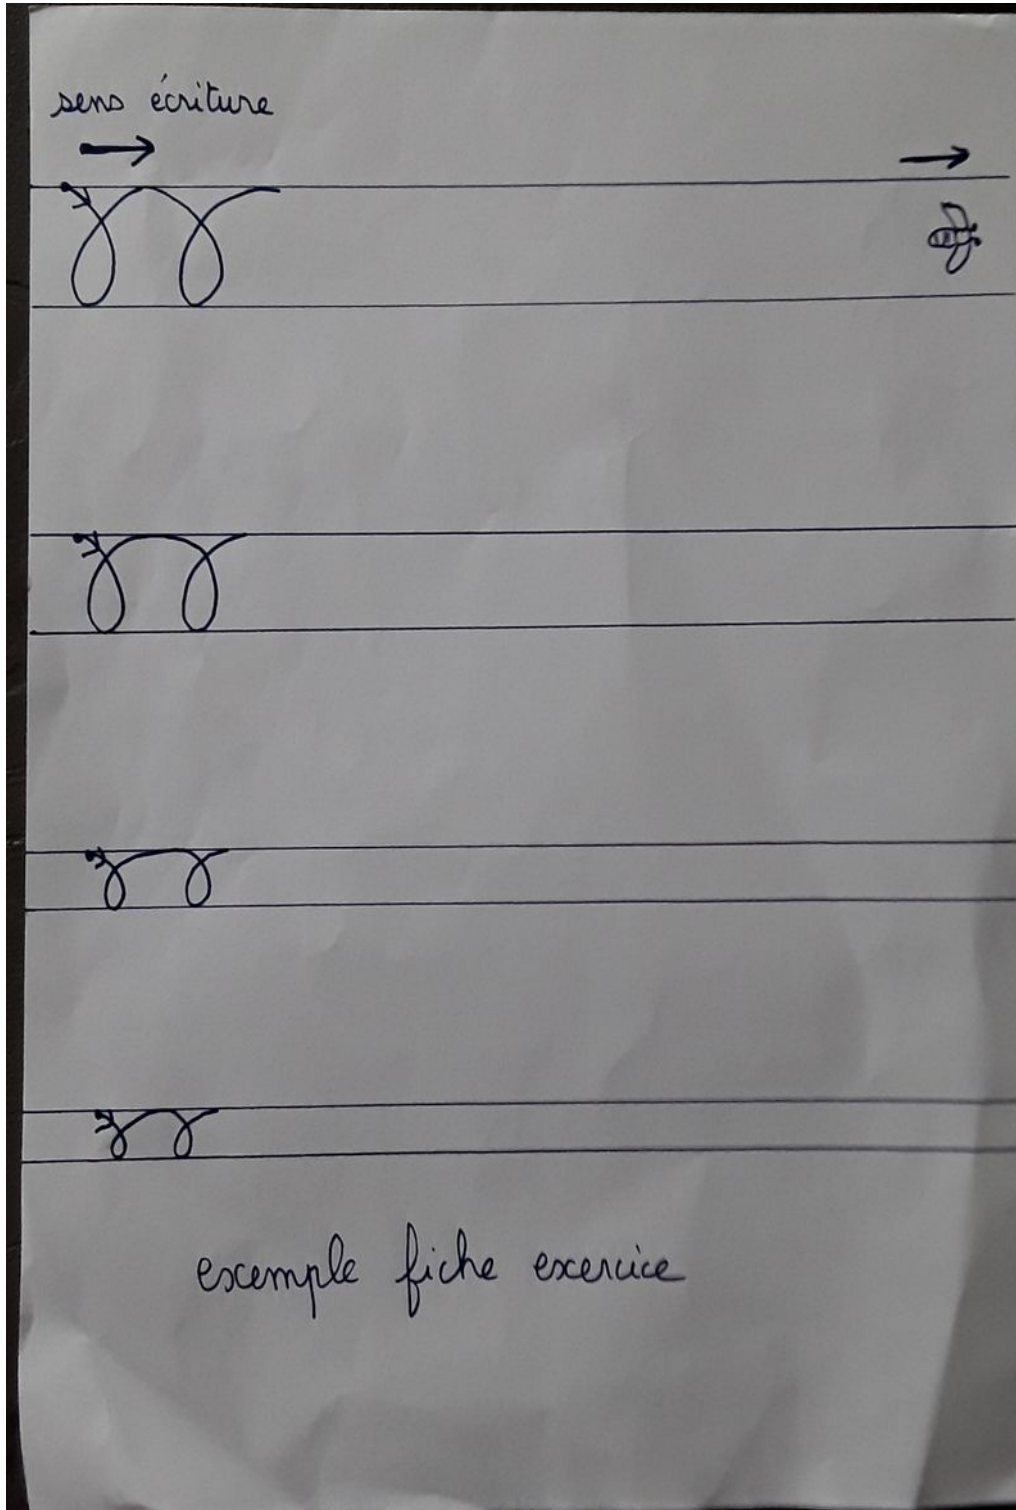 sens écriture
exemple fiche exercice